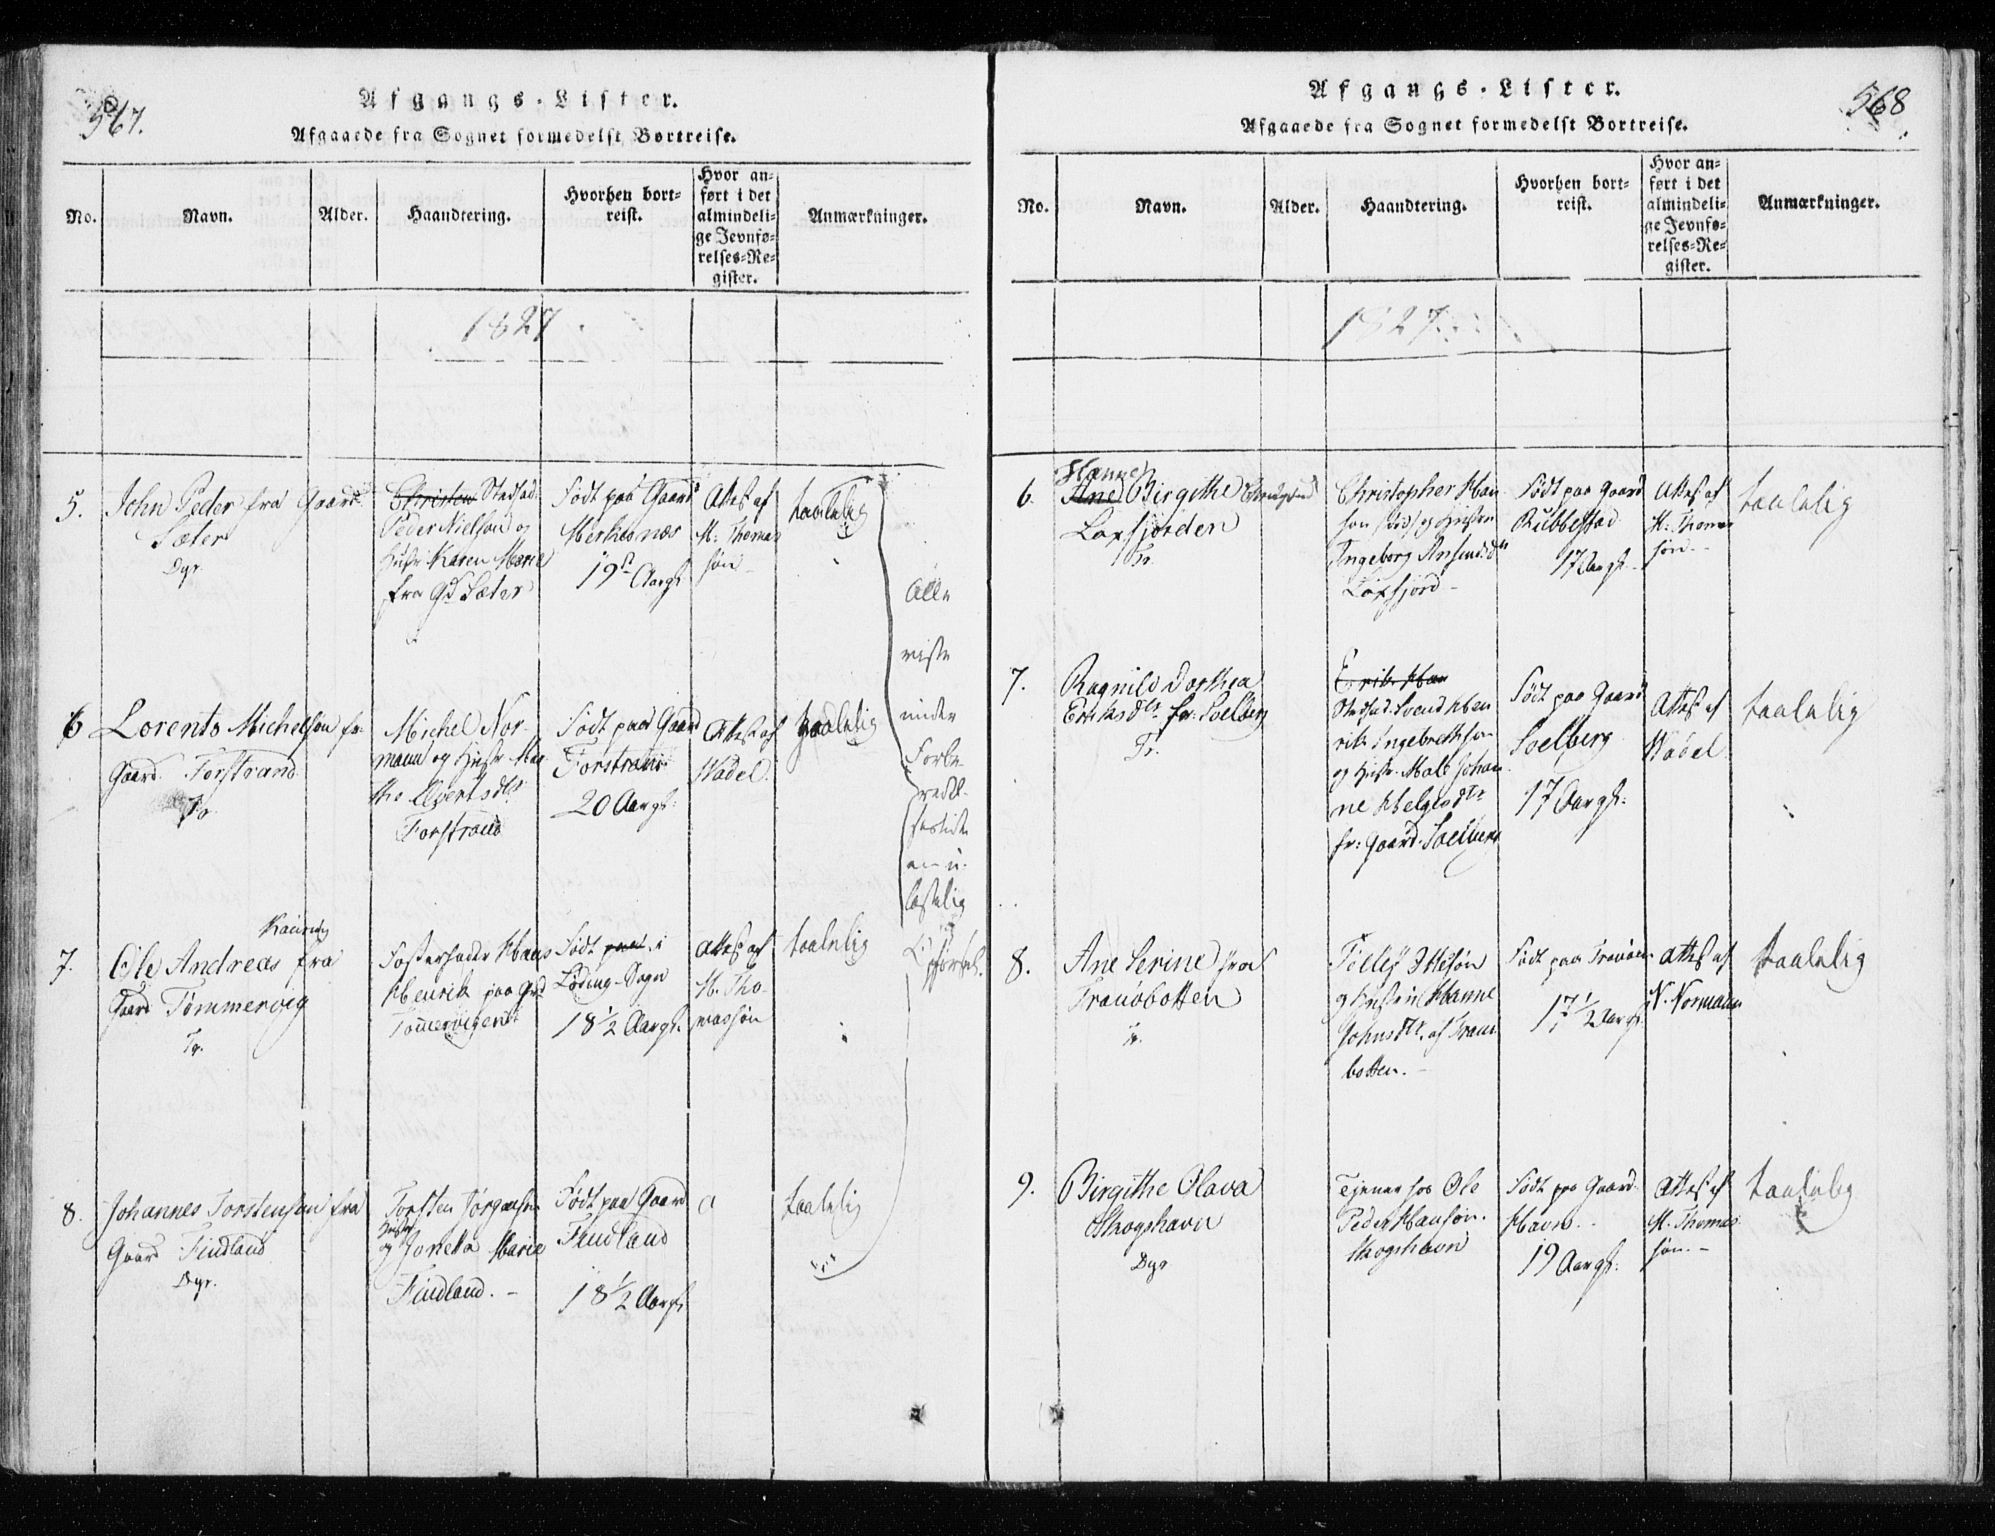 567.
Afgangs-Lister.
Afgaaede fra Sognet formedelst Bortreise.
No.
Navn.
Alder.
Haandtering.
Hvorhen bort-
reist.
Hvor an-
ført i det
almindeli-
ge Jevnfø-
relses-Re-
gister.
Anmærkninger.
1827.
5.
John Peder fra Gaard
Sæter
Dgr
Christen Stedfad:
Peder Nielsøn og
Hustr Karen Marie
fra Gd Sæter
Født paa Gaard
Merkesnæs
19 Aargl
Attest af
M: Thomas
søn
taalelig
6
Lorents Michelsøn fr:
Gaard Forstrand
Do
Michel Nor-
mann og Hustr Mar-
the Elvertsdtr
Forstrand
Født paa Gaard
Forstrand
20 Aargl:
Attest af
Wadel.
taalelig
7.
Ole Andreas fra
Gaard Tømmervig
Tr.
Fosterfader Hans
Henrik paa Grd
Tømmervigen
Født paa i
Løding-Sogn
18 1/2 Aargl.
Attest af
M. Tho-
massøn
taalelig
8.
Johannes Torstensøn fra
Gaard Findland
Dgr.
Torsten Jørgensen
Hustr
og Jonetta Marie
Findland. -
Født paa Gaard
Findland
18 1/2 Aargl
taalelig
Alle
viste
under
Forbe
redel-
sestiden
en u-
lastelig
Opførsel.
568
Afgangs-Lister.
Afgaaede fra Sognet formedelst Bortreise.
No.
Navn.
Alder.
Haandtering.
Hvorhen bort-
reist.
Hvor an-
ført i det
almindeli-
ge Jevnfø-
relses-Re-
gister.
Anmærkninger.
1827.
6.
Hanne
Ane Birgithe
Laxfjorden
Tr.
Christopher Han
søn og Hustru
Ingeborg Amundsdtr
Laxfjord -
Født paa Gaard
Rubbestad
17 Aargl.
Attest af
M: Thomas
søn. -
taalelig
7.
Ragnild Dorthea
Eriksdtr fr. Solberg
Tr.
Erik Han
Stedfad. Svend Hen
rik Ingebrethsøn
og Hustr. Malt Johan
ne Helgesdtr
fr: Gaard Solberg
Født paa Gaard
Solberg
17 Aargl:
Attest af
Wadel
taalelig
8.
Ane Serine fra
Tranøbotten
Tr.
og Hustru Hanne
Johnsdtr. af Tranø
botten. -
Født paa Tranøen
17 1/2 Aargl.
Attest af
N. Normann
taalelig
9.
Birgithe Olava
Skogshavn
Dgr
Tjener hos Ole
Peder Hansøn.
Skogshavn
Født paa Gaard
Havn. -
19 Aargl:
Attest af
M. Thomas
søn. -
taalelig